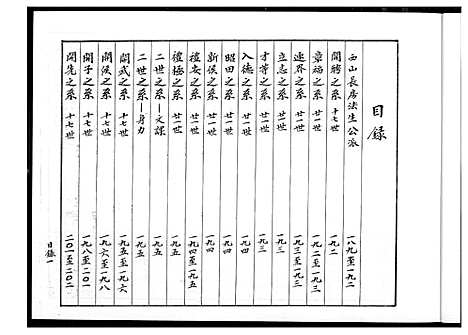 目錄
西山長房法生公派 一八九至一九二
開聘之系 十七世 一九二
章福之系 廿一世 一九二至一九三
連界之系 廿一世 一九三至一九三
立志之系 廿一世 一九三
才等之系 廿一世 一九三
入德之系 廿一世 一九四
昭田之系 廿一世 一九四
新候之系 廿一世 一九四
禮安之系 廿一世 一九四至一九五
禮極之系 廿一世 一九五
二世之系—文謀 一九五
二世之系—身力 一九五
開武之系 十七世 一九五至一九六
開侯之系 十七世 一九六至一九八
開子之系 十七世 一九八至二〇一
開先之系 十七世 二〇一至二〇二
目錄一